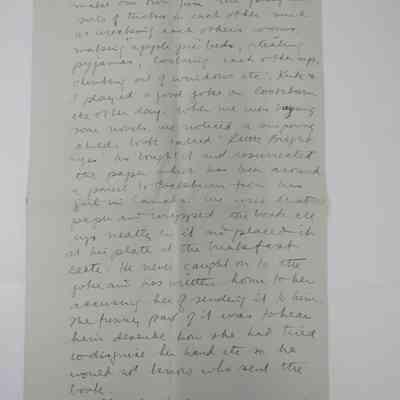 makes our own fun. We play all
sorts of tricks on each other such
as wrecking each others rooms,
making apple pie beds, stealing
pyjamas, locking each other up,
climbing out of windows etc. Kirk &
I played a good joke on Cockburn
the other day. When we were buying
some novels, we noticed a inspiring
child's book called "Little Bright
Eyes". We bought it and resurrected
the paper which has been around
a parcel to Cockburn from his
girl in Canada. We used that
paper and wrapped the book all
up neatly in it and placed it
at his plate at the breakfast
table. He never caught on to the
joke and has written home to her
accusing her of sending it to him.
The funny part of it was to hear
him describe how she had tried
to disguise her hand etc so he
would not know who sent the
book.